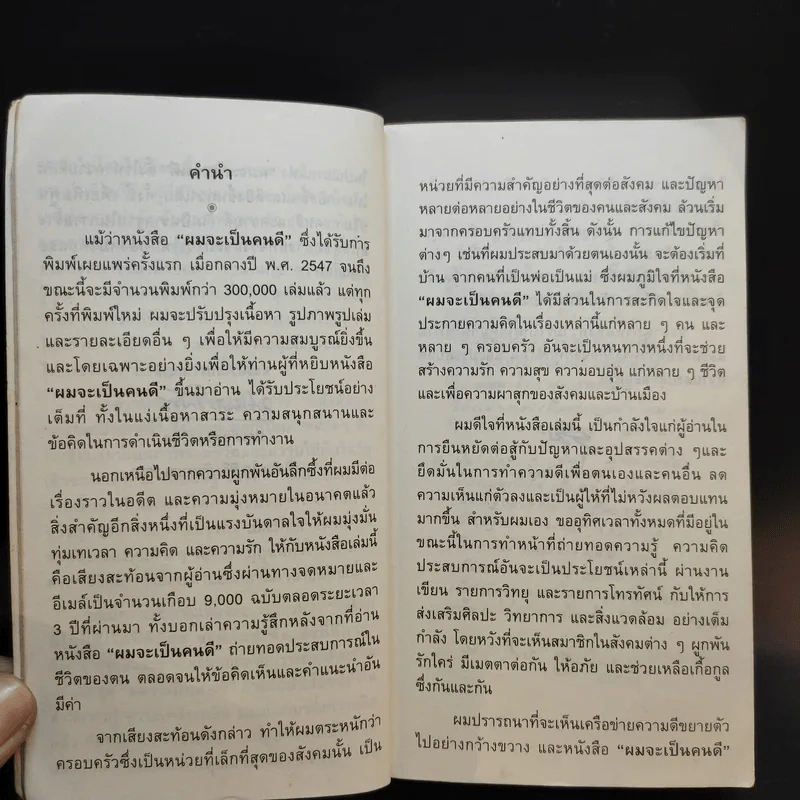 คำนำ
แม้ว่าหนังสือ “ผมจะเป็นคนดี” ซึ่งได้รับการ
พิมพ์เผยแพร่ครั้งแรก เมื่อกลางปี พ.ศ. 2547 จนถึง
ขณะนี้จะมีจำนวนพิมพ์กว่า 300,000 เล่มแล้ว แต่ทุก
ครั้งที่พิมพ์ใหม่ ผมจะปรับปรุงเนื้อหา รูปภาพรูปเล่ม
และรายละเอียดอื่น ๆ เพื่อให้มีความสมบูรณ์ยิ่งขึ้น
และโดยเฉพาะอย่างยิ่งเพื่อให้ท่านผู้ที่หยิบหนังสือ
“ผมจะเป็นคนดี” ขึ้นมาอ่าน ได้รับประโยชน์อย่าง
เต็มที่ ทั้งในแง่เนื้อหาสาระ ความสนุกสนานและ
ข้อคิดในการดำเนินชีวิตหรือการทำงาน
นอกเหนือไปจากความผูกพันอันลึกซึ้งที่ผมมีต่อ
เรื่องราวในอดีต และความมุ่งหมายในอนาคตแล้ว
สิ่งสำคัญอีกสิ่งหนึ่งที่เป็นแรงบันดาลใจให้ผมมุ่งมั่น
ทุ่มเทเวลา ความคิด และความรัก ให้กับหนังสือเล่มนี้
คือเสียงสะท้อนจากผู้อ่านซึ่งผ่านทางจดหมายและ
อีเมล์เป็นจำนวนเกือบ 9,000 ฉบับตลอดระยะเวลา
3 ปีที่ผ่านมา ทั้งบอกเล่าความรู้สึกหลังจากที่อ่าน
หนังสือ “ผมจะเป็นคนดี” ถ่ายทอดประสบการณ์ใน
ชีวิตของตน ตลอดจนให้ข้อคิดเห็นและคำแนะนำอัน
มีค่า
จากเสียงสะท้อนดังกล่าว ทำให้ผมตระหนักว่า
ครอบครัวซึ่งเป็นหน่วยที่เล็กที่สุดของสังคมนั้น เป็น
หน่วยที่มีความสำคัญอย่างที่สุดต่อสังคม และปัญหา
หลายต่อหลายอย่างในชีวิตของคนและสังคม ล้วนเริ่ม
มาจากครอบครัวแทบทั้งสิ้น ดังนั้น การแก้ไขปัญหา
ต่างๆ เช่นที่ผมประสบมาด้วยตนเองนั้น จะต้องเริ่มที่
บ้าน จากคนที่เป็นพ่อเป็นแม่ ซึ่งผมภูมิใจที่หนังสือ
“ผมจะเป็นคนดี” ได้มีส่วนในการสะกิดใจและจุด
ประกายความคิดในเรื่องเหล่านี้แก่หลาย ๆ คน และ
หลาย ๆ ครอบครัว อันจะเป็นหนทางหนึ่งที่จะช่วย
สร้างความรัก ความสุข ความอบอุ่น แก่หลาย ๆ ชีวิต
และเพื่อความผาสุกของสังคมและบ้านเมือง
ผมดีใจที่หนังสือเล่มนี้ เป็นกำลังใจแก่ผู้อ่านใน
การยืนหยัดต่อสู้กับปัญหาและอุปสรรคต่าง ๆและ
ยึดมั่นในการทำความดีเพื่อตนเองและคนอื่น ลด
ความเห็นแก่ตัวลงและเป็นผู้ให้ที่ไม่หวังผลตอบแทน
มากขึ้น สำหรับผมเอง ขออุทิศเวลาทั้งหมดที่มีอยู่ใน
ขณะนี้ในการทำหน้าที่ถ่ายทอดความรู้ ความคิด
ประสบการณ์อันจะเป็นประโยชน์เหล่านี้ ผ่านงาน
เขียน รายการวิทยุ และรายการโทรทัศน์ กับให้การ
ส่งเสริมศิลปะ วิทยาการ และสิ่งแวดล้อม อย่างเต็ม
กำลัง โดยหวังที่จะเห็นสมาชิกในสังคมต่าง ๆ ผูกพัน
รักใคร่ มีเมตตาต่อกัน ให้อภัย และช่วยเหลือเกื้อกูล
ซึ่งกันและกัน
ผมปรารถนาที่จะเห็นเครือข่ายความดีขยายตัว
ไปอย่างกว้างขวาง และหนังสือ “ผมจะเป็นคนดี”